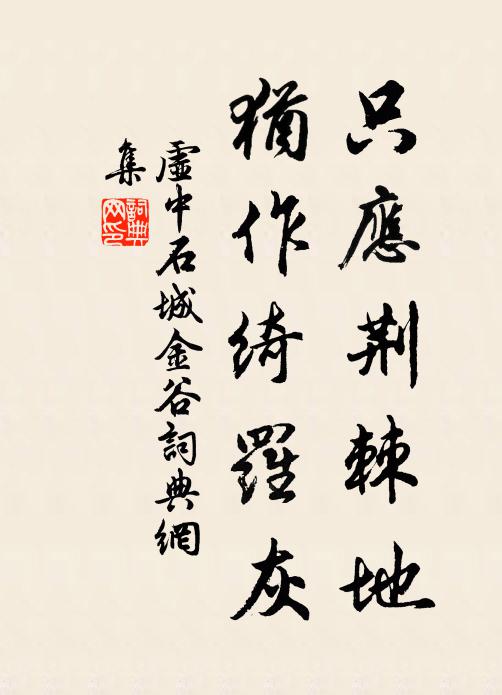 只應荆棘地
猶作綺羅灰
虛中石城金谷詞典網
集
詞典
网印